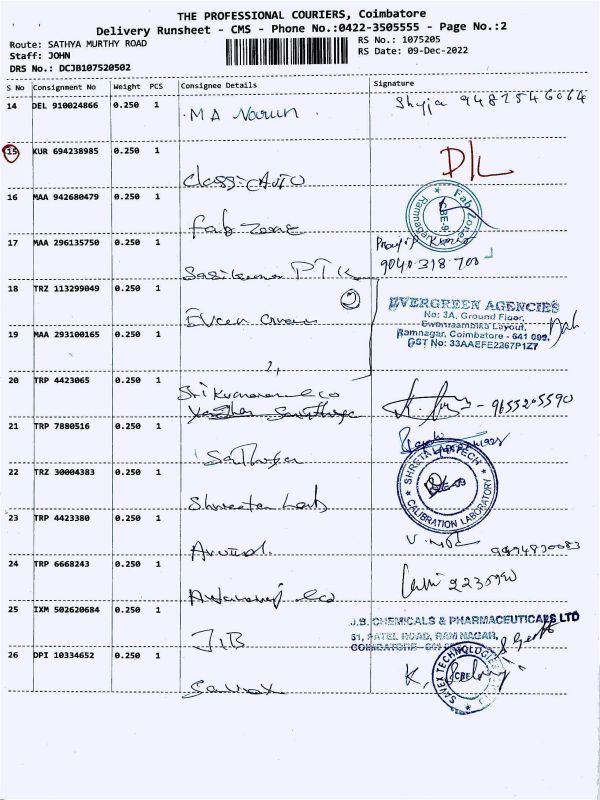 THE PROFESSIONAL COURIERS, Coimbatore
Delivery Runsheet - CMS - Phone No.:0422-3505555 - Page No.:2
Route: SATHYA MURTHY ROAD
RS No.: 1075205
Staff: JOHN
RS Date: 09-Dec-2022
DRS No.: DCJB107520502
S No Consignment No Weight PCS Consignee Details Signature
14 DEL 910024866 0.250 1 M A Narun Shyja
15 KUR 694238985 0.250 1 Classic Auto D/L
16 MAA 942680479 0.250 1 Fab Zone
Fab Zone
Ramnagar
CBE-9
17 MAA 296135750 0.250 1 Sasikumar PTK
9040 318 700
18 TRZ 113299049 0.250 1 Evergreen
2
EVERGREEN AGENCIES
No: 3A, Ground Floor,
Layout,
Ramnagar, Coimbatore - 641 009.
GST No: 33AAEFE2267P1Z7
19 MAA 293100165 0.250 1 "
20 TRP 4423065 0.250 1 Sri & co 9655205590
21 TRP 7880516 0.250 1 Sathya
22 TRZ 30004383 0.250 1 Labs
SHRETA LABTECH
CALIBRATION LABORATORY
23 TRP 4423380 0.250 1 Arvind
24 TRP 6668243 0.250 1 & co 2230990
25 IXM 502620684 0.250 1 J.B
J.B. CHEMICALS & PHARMACEUTICALS LTD
51, PATEL ROAD, RAM NAGAR,
26 DPI 10334652 0.250 1 Savex
SAVEX TECHNOLOGIES
CBE